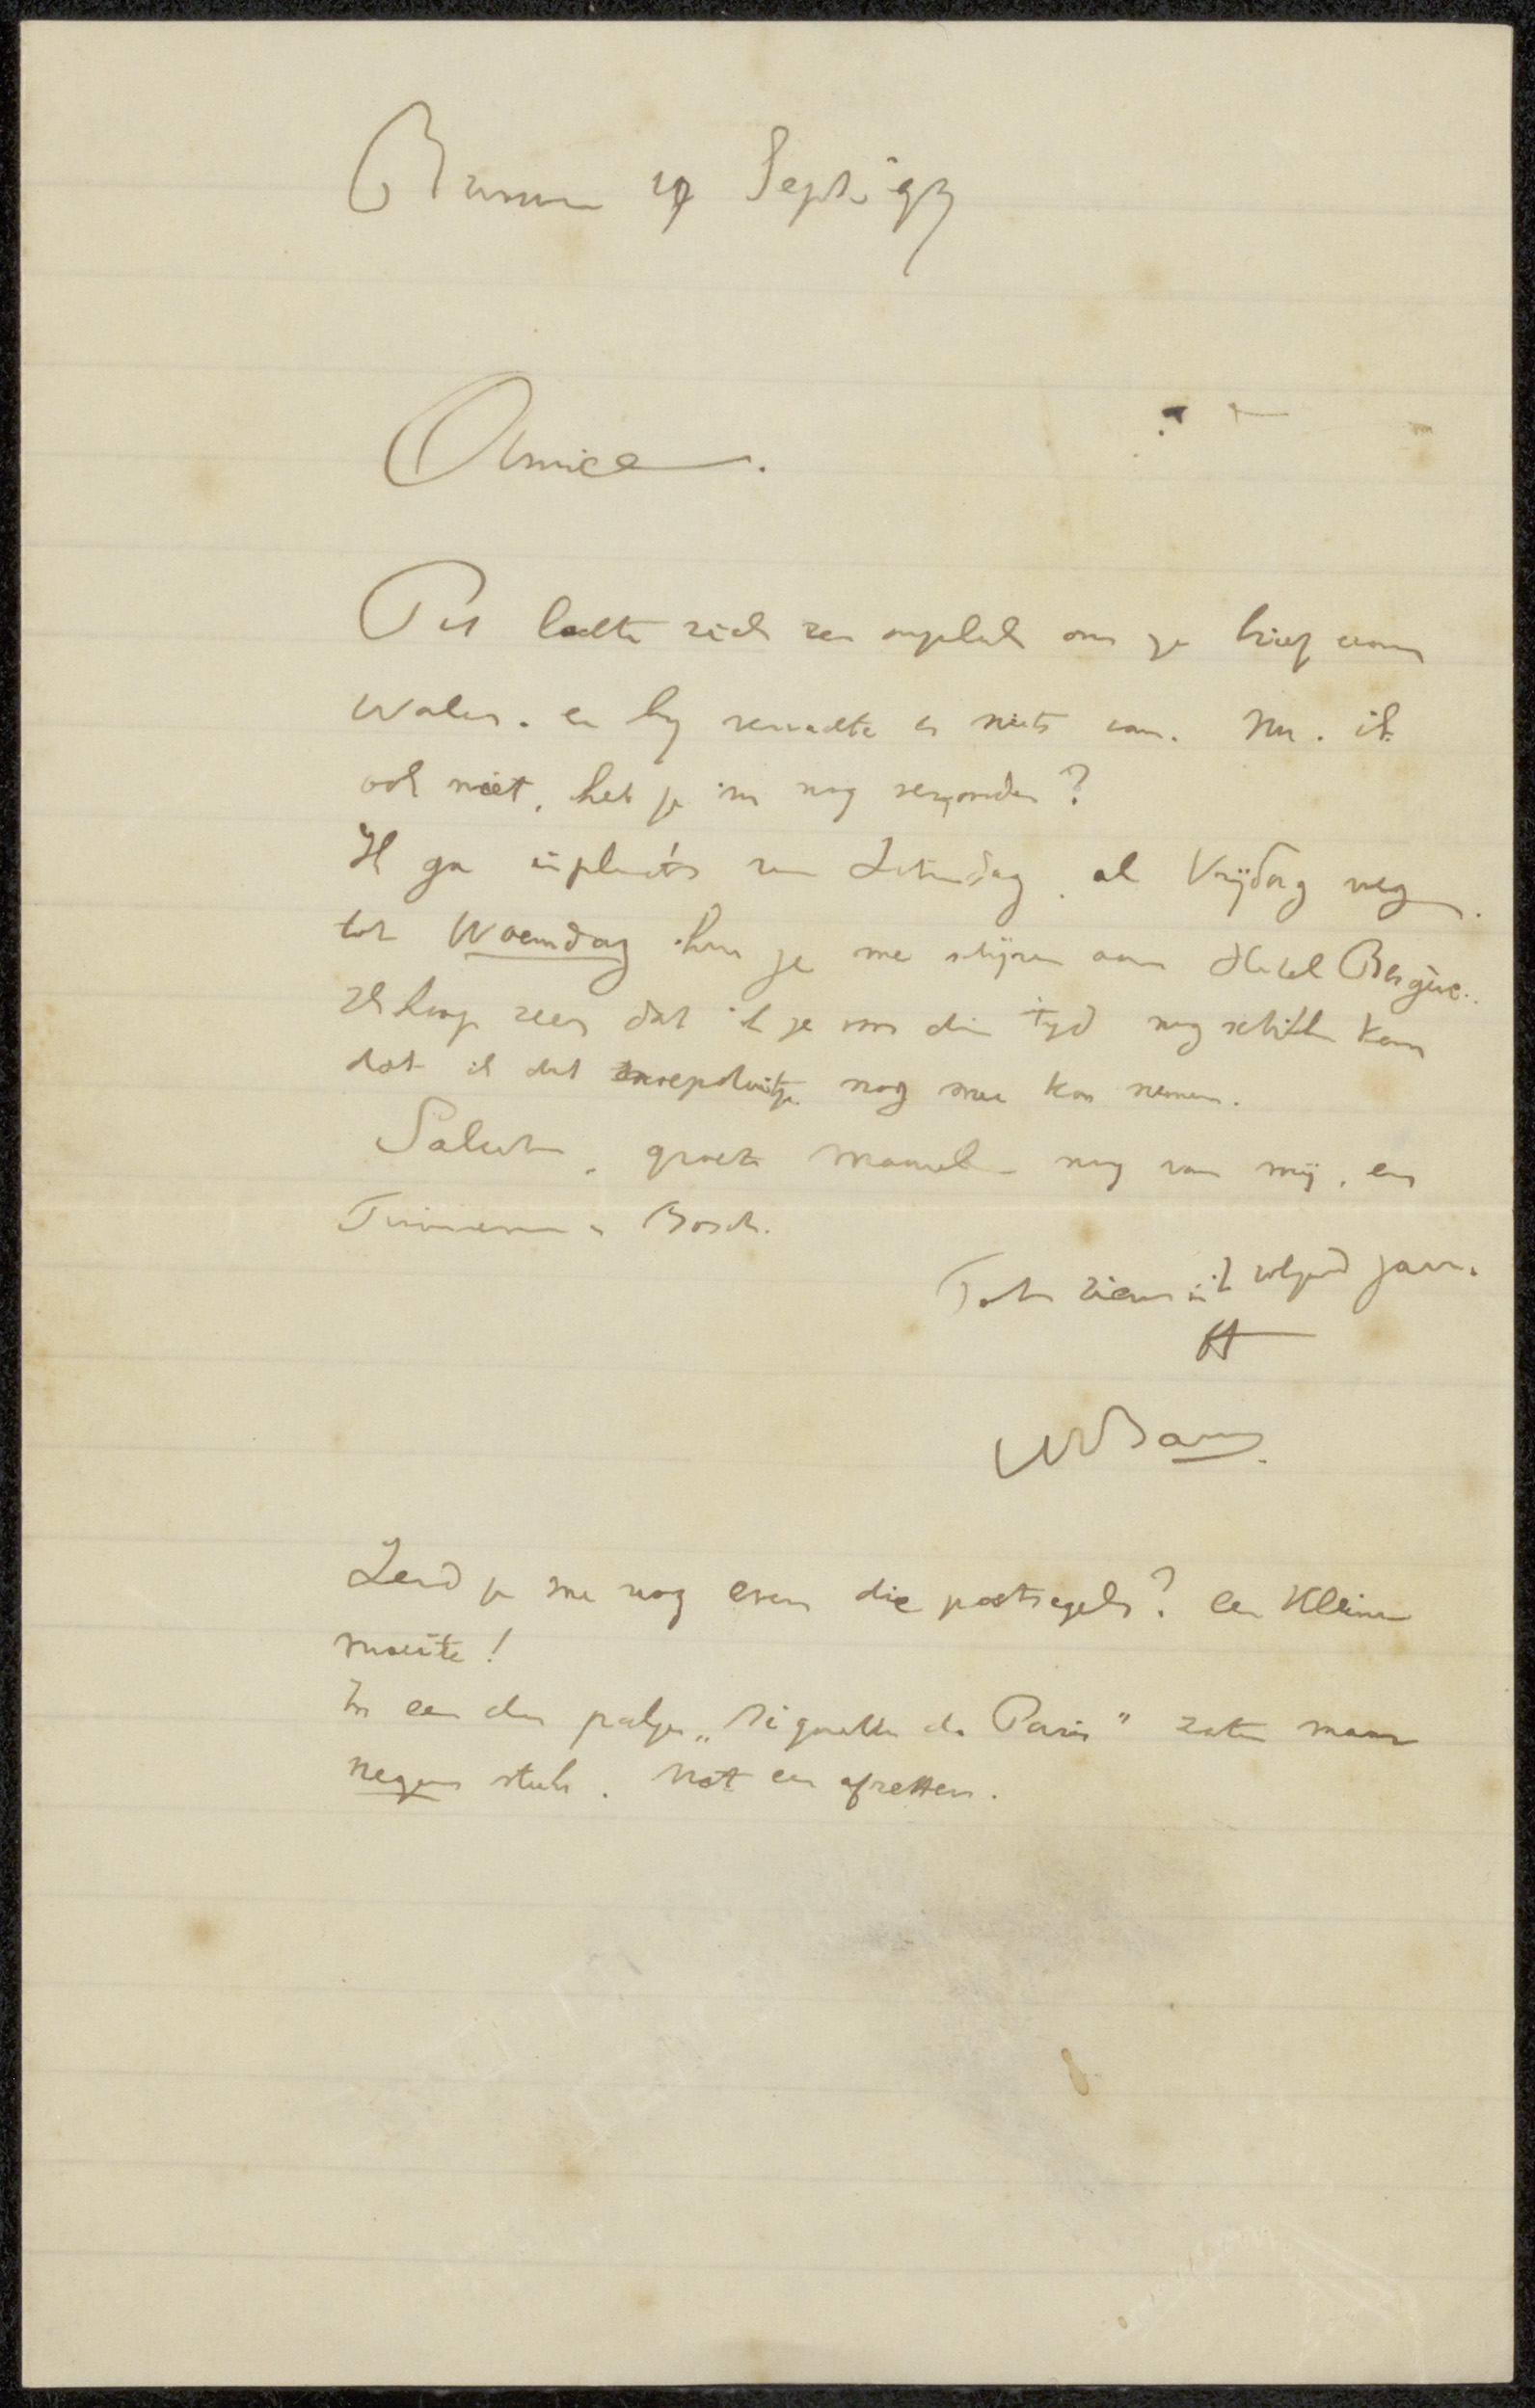 Sept. 93
Amice.
Piet lachte zich een ongeluk om je brief van
Walen. en hy verwachtte er niets van. Nu. ik
ook niet, heb je 'm nog verzonden?
Ik ga inplaats van Zaterdag. al Vrijdag weg.
tot Woensdag kun je me schrijven aan Hotel Bergère..
Ik hoop zeer dat ik je voor die tyd nog schikken kan
dat ik dat nog mee kan nemen.
Salut. groet nog van mij, en
Timmerman en Bosch.
Tot ziens in 't volgend jaar.
Zend je me nog even die postzegels? een kleine
moeite!
In een der pakjes „ de Paris" zaten maar
negen stuks. Nat een afzetten.